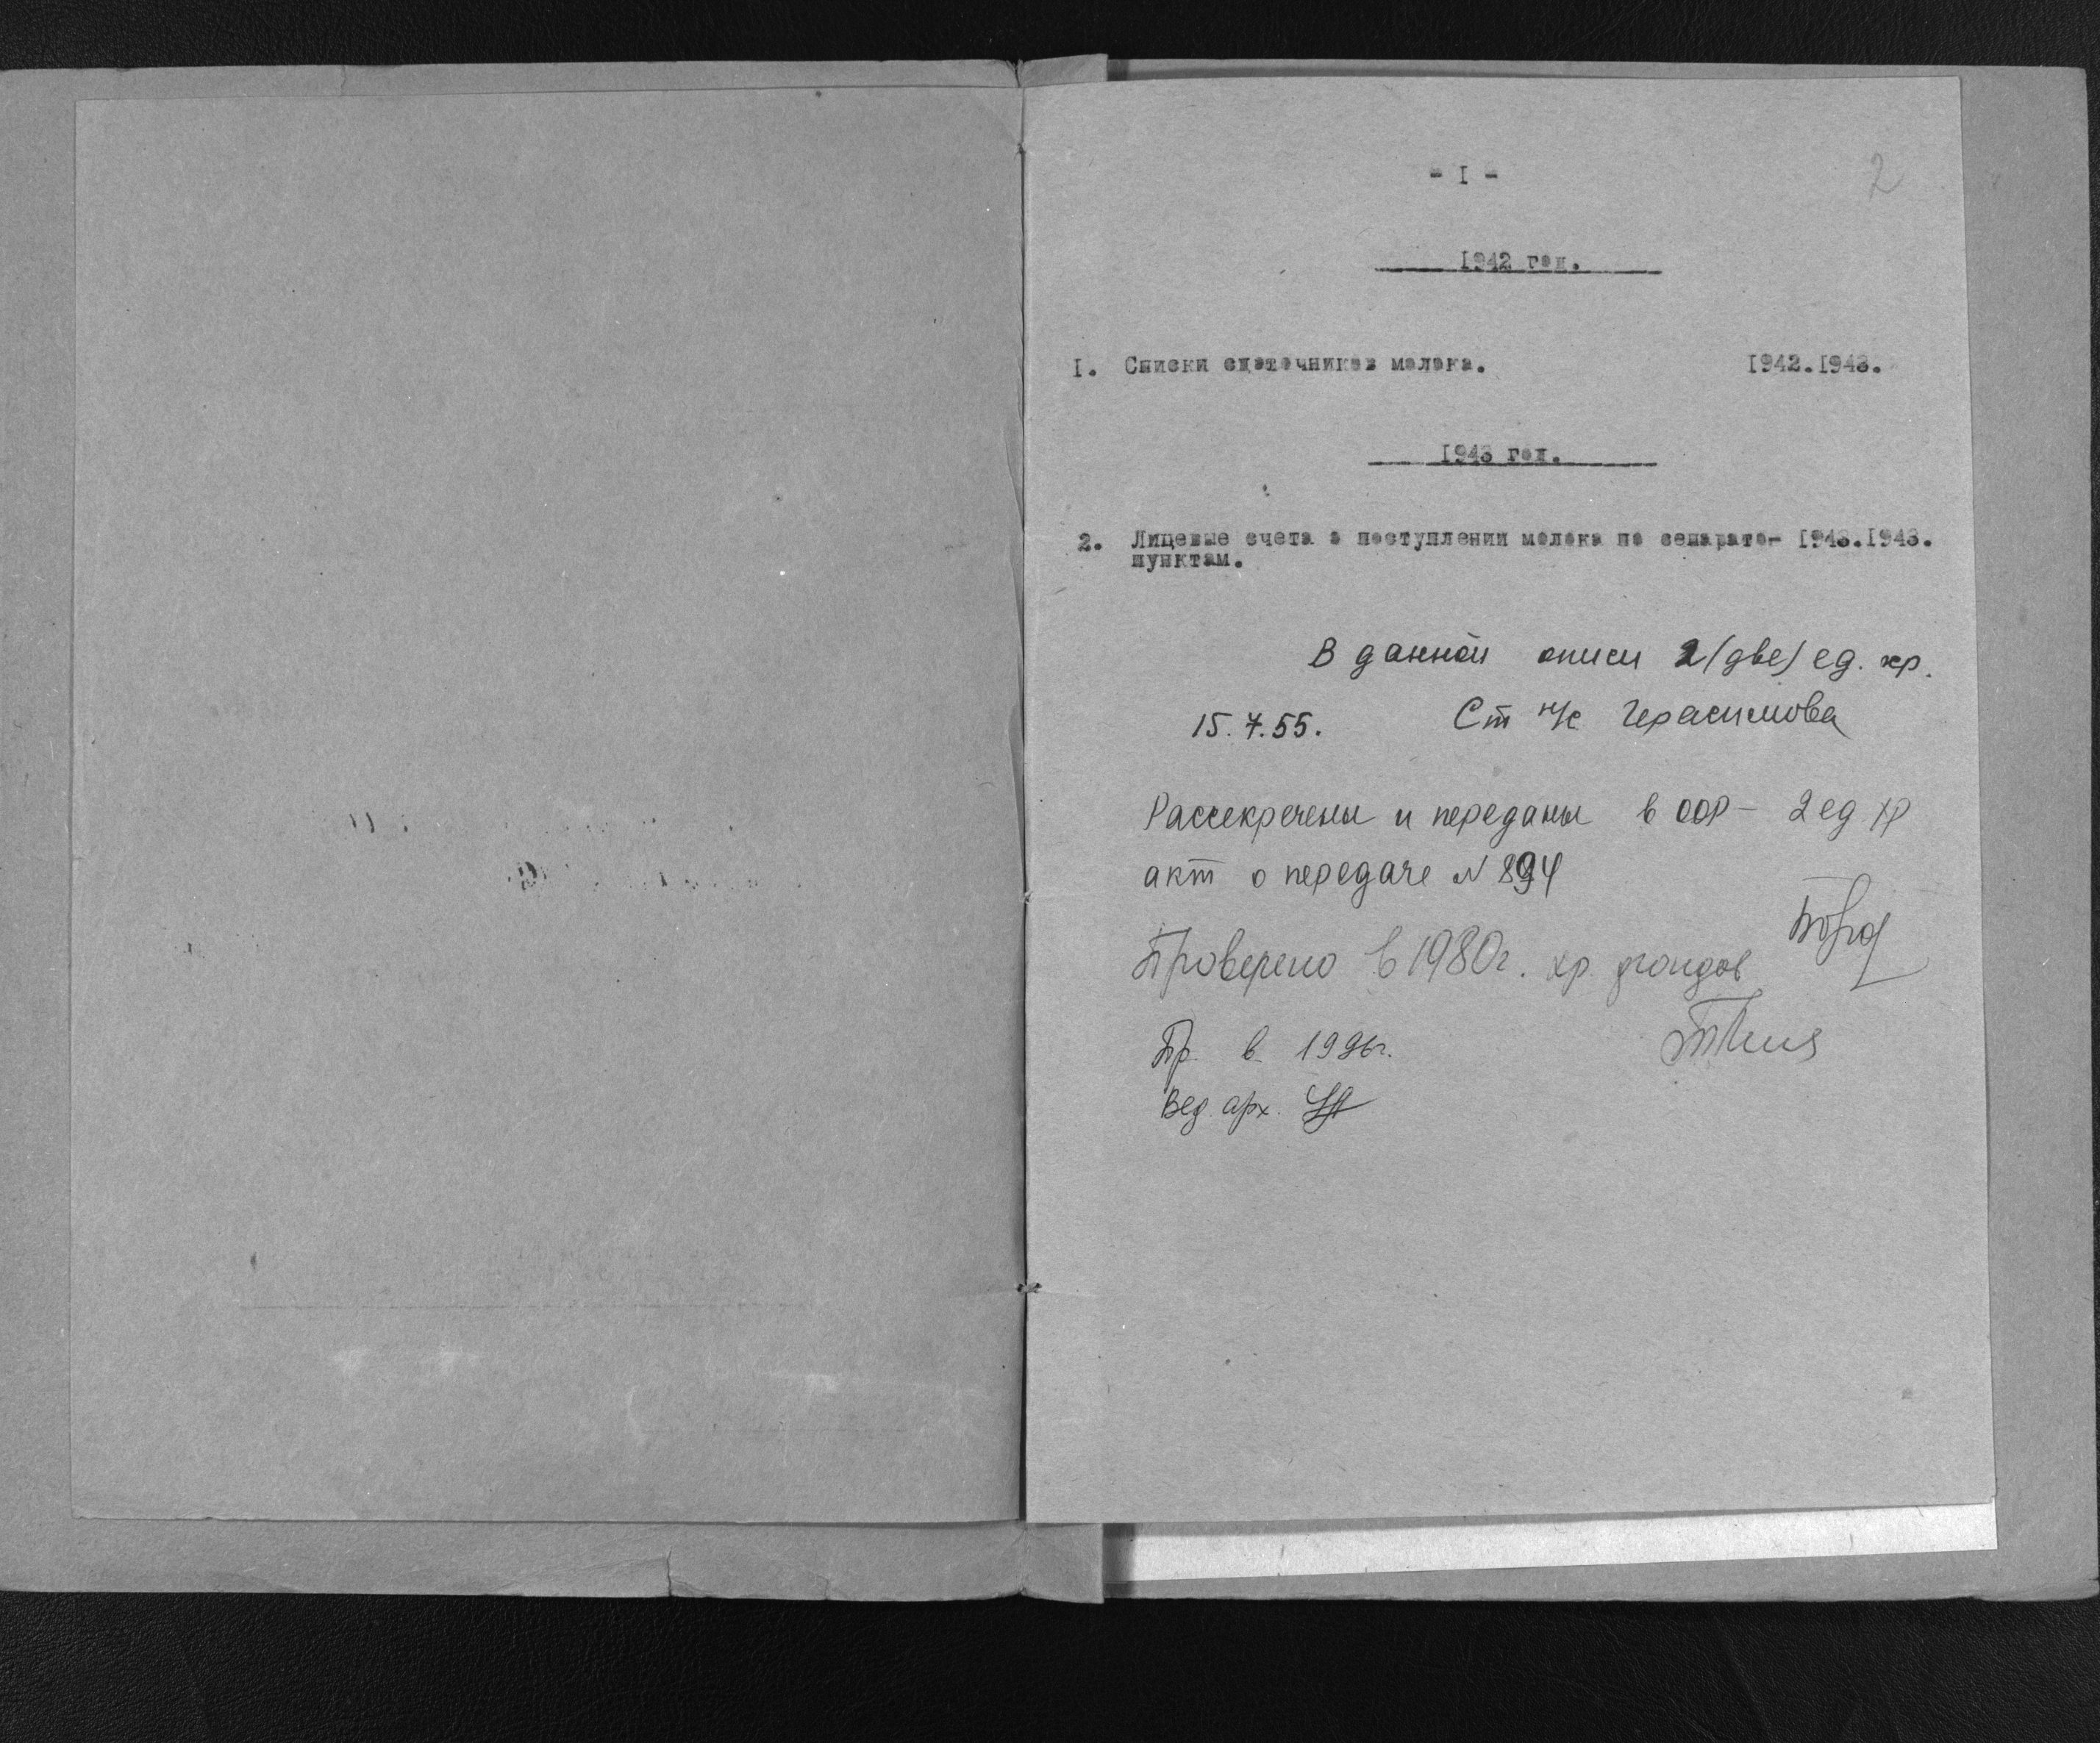 - I -
2
1942 год.
I. Списки сдаточников молока. 1942.1943.
1943 год.
2. Лицевые счета о поступлении молока по сепарато- 1943.1943.
пунктам.
В данной описи 2 (две) ед. хр.
15.7.55. Ст н/с Герасимова
Рассекречены и переданы в ООР — 2 ед. хр
акт о передаче N 894
Проверено в 1980г. хр. фондов
Пр. в 1996г.
Вед. арх.